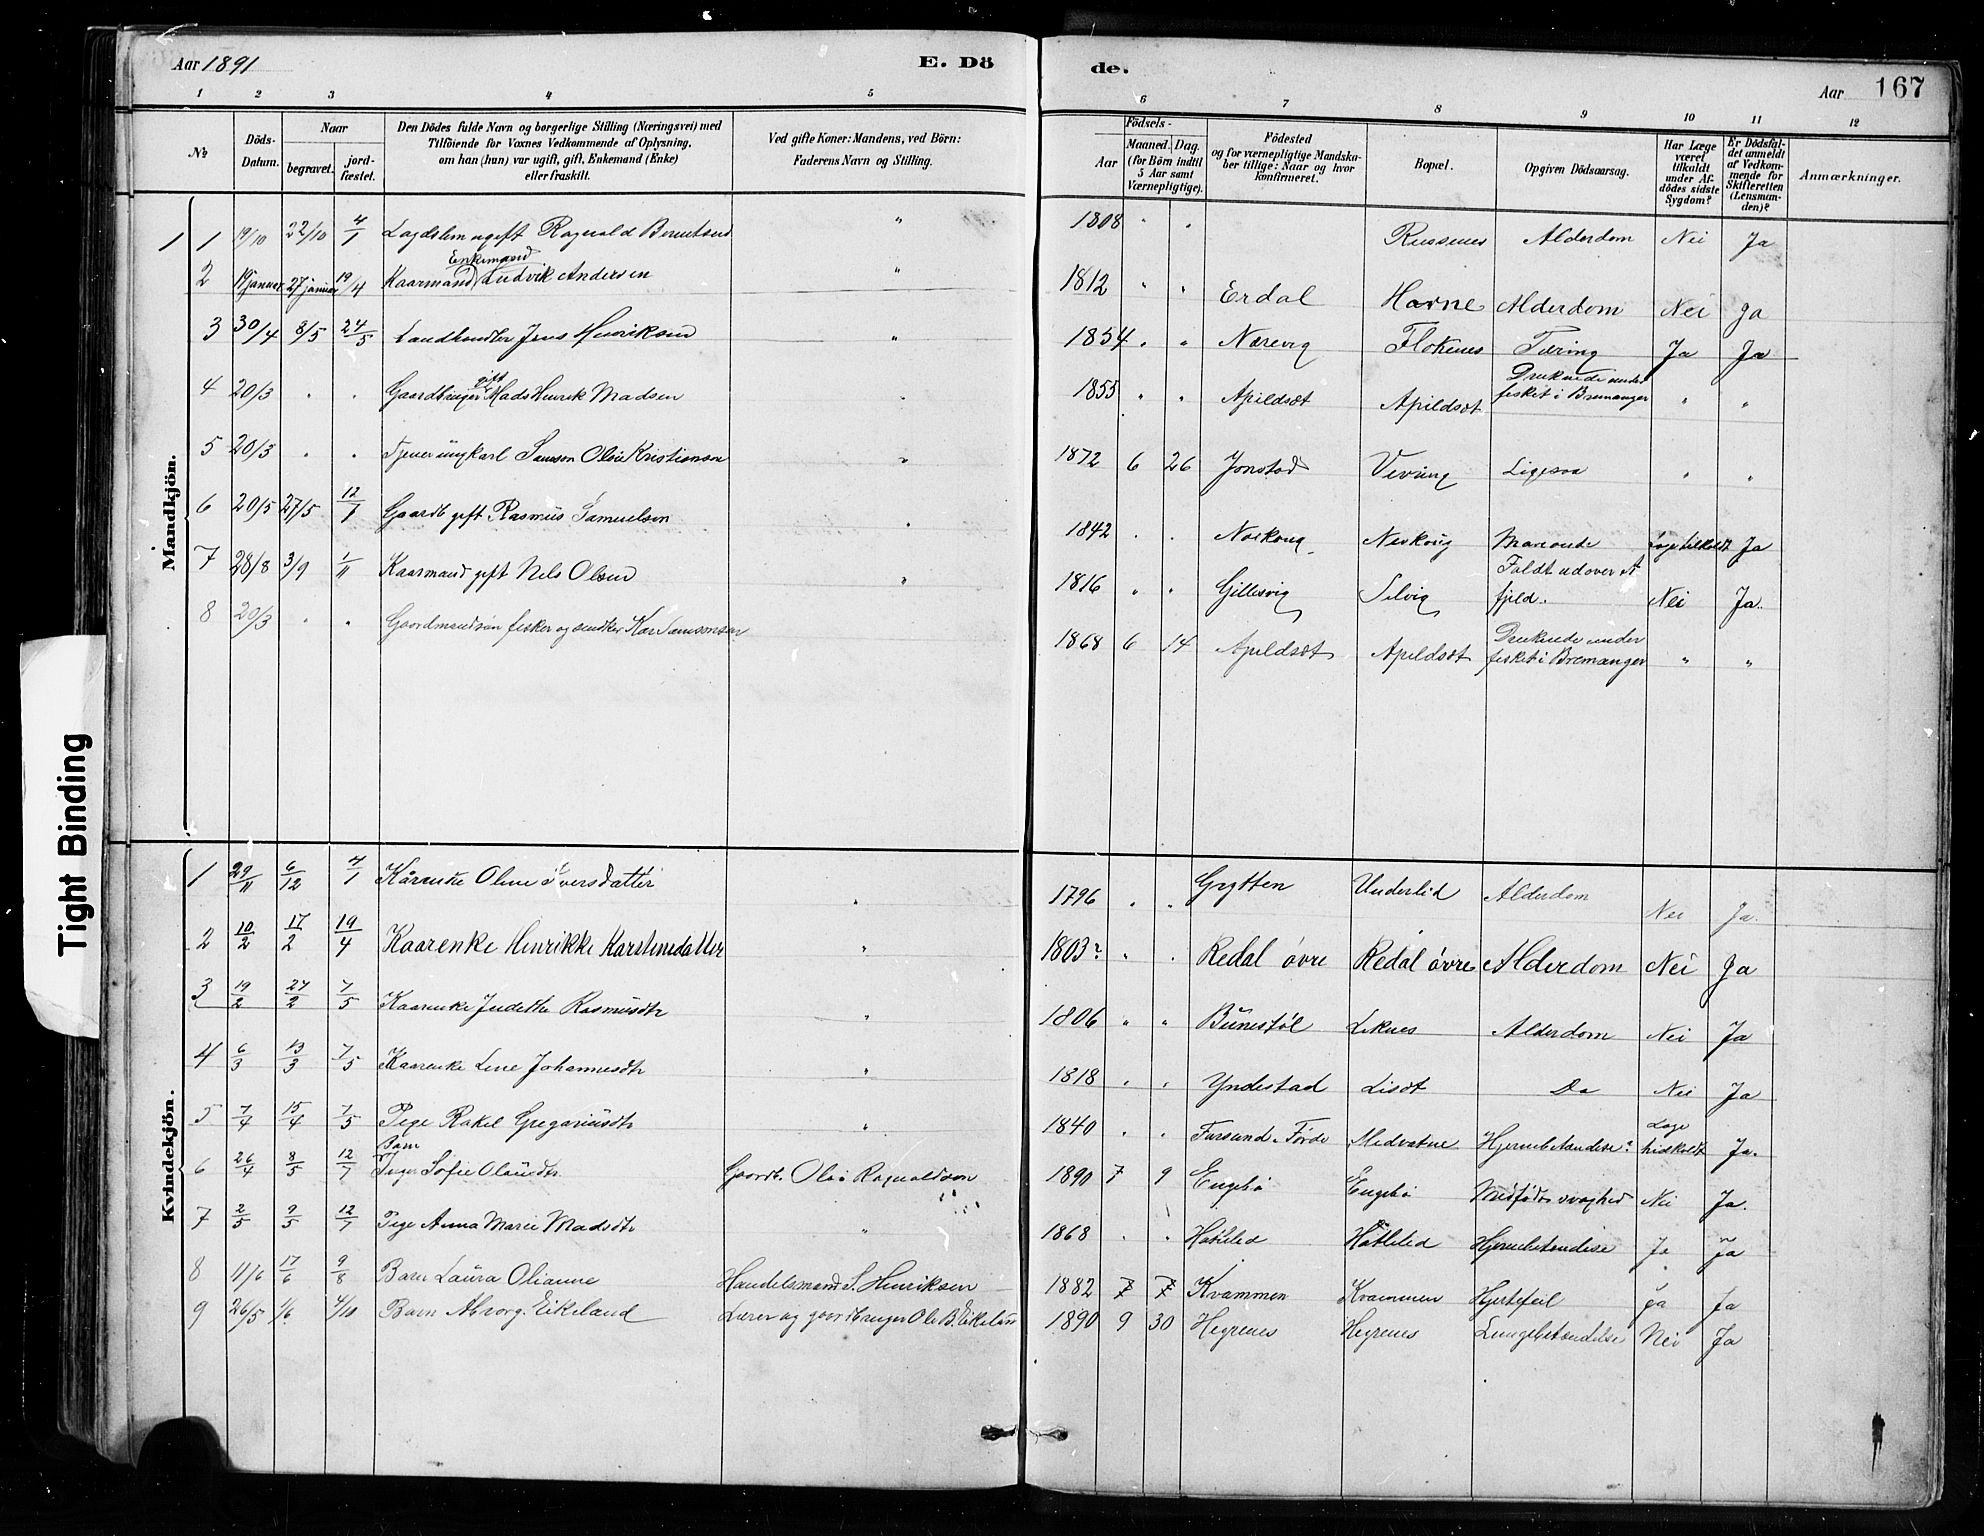 Aar 1891
E. Dö
de.
Aar
167
1 2 3 4 5 6 7 8 9 10 11 12
№
Döds-Datum.
Naar
begravet.
jord-fæstet.
Den Dödes fulde Navn og borgerlige Stilling (Næringsvei) med
Tilföiende for Voxnes Vedkommende af Oplysning,
om han (hun) var ugift, gift, Enkemand (Enke)
eller fraskilt.
Ved gifte Koner: Mandens, ved Börn:
Faderens Navn og Stilling.
Födsels-
Aar
Maaned. Dag.
(for Börn indtil
5 Aar samt
Værnepligtige).
Födested
og for værnepligtige Mandska-
ber tillige: Naar og hvor
konfirmeret.
Bopæl.
Opgiven Dödsaarsag.
Har Læge
været
tilkaldt
under Af-
dödes sidste
Sygdom?
Er Dödsfal-
det anmeldt
af Vedkom-
mende for
Skifteretten
(Lensman-
den)?
Anmærkninger.
Mandkjön.
1 1 19/10 22/10 4/1 Lægdslem ugift Ragnvald Berentsen " 1808 " " Russenes Alderdom Nei Ja
Enkemand
2 19 januar 27 januar 19/4 Kaarmand Ludvik Andersen " 1812 " " Erdal Havne Alderdom Nei Ja
3 30/4 8/5 24/5 Landhandler Jens Henriksen " 1854 " " Nærevig Flokenes Tæring Ja Ja
gift
4 20/3 " " Gaardbruger Mads Henrik Madsen " 1855 " " Apildsæt Apildsæt Druknede under
fisket i Bremanger " "
5 20/3 " " Tjener ungkarl Samson Olai Kristiansen " 1872 6 26 Jonstad Vevring Ligesaa " "
6 20/5 27/5 12/7 Gaardb gift Rasmus Samuelsen " 1842 " " Norkoug Norkoug Læge tilkaldt Ja
7 28/8 3/9 1/11 Kaarmand gift Nels Olsen " 1816 " " Gillesvig Selvig Faldt udover et
fjeld. Nei Ja.
8 20/3 " " Gaardmandsøn fisker og Samsonsen 1868 6 14 Apildsæt Apildsæt Druknede under
fisket i Bremanger " "
Kvindekjön.
1 29/11 6/12 4/1 Kårenke Oline Iversdatter " 1796 " " Grytten Underlid Alderdom Nei Ja.
2 10/2 17/2 19/4 Kaarenke Henrikke Karstensdatter " 1803? " " Redal övre Redal övre Alderdom Nei Ja
3 19/2 27/2 7/5 Kaarenke Judithe Rasmusdtr " 1806 " " Bünestøl Leknes Alderdom Nei Ja
4 6/3 13/3 7/5 Kaarenke Lene Johannesdtr " 1818 " " Yndestad Lisæt Do Nei Ja
5 7/4 15/4 7/5 Pige Rakel Gregoriusdtr " 1840 " " Fursund Førde Medvatne Hjernebetændelse? Læge
tilkaldt Ja.
Barn
6 26/4 8/5 12/7 Inger Sofie Olaidtr Gaardb. Olai Ragnvaldson 1890 7 9 Engebø Engebø Medfødt svaghed Nei Ja.
7 2/5 9/5 12/7 Pige Anna Marie Madsdtr " 1868 " " Hatleled Hatleled Hjernebetændelse Ja Ja
8 11/6 17/6 9/8 Barn Laura Olianne Handelsmand S. Henriksen 1882 7 7 Kvammen Kvammen Hjertefeil Ja Ja
9 26/5 1/6 4/10 Barn Eikeland Lærer og gaardbruger Ole B. Eikeland 1890 9 30 Hegrenes Hegrenes Lungebetændelse Nei Ja
Tight Binding